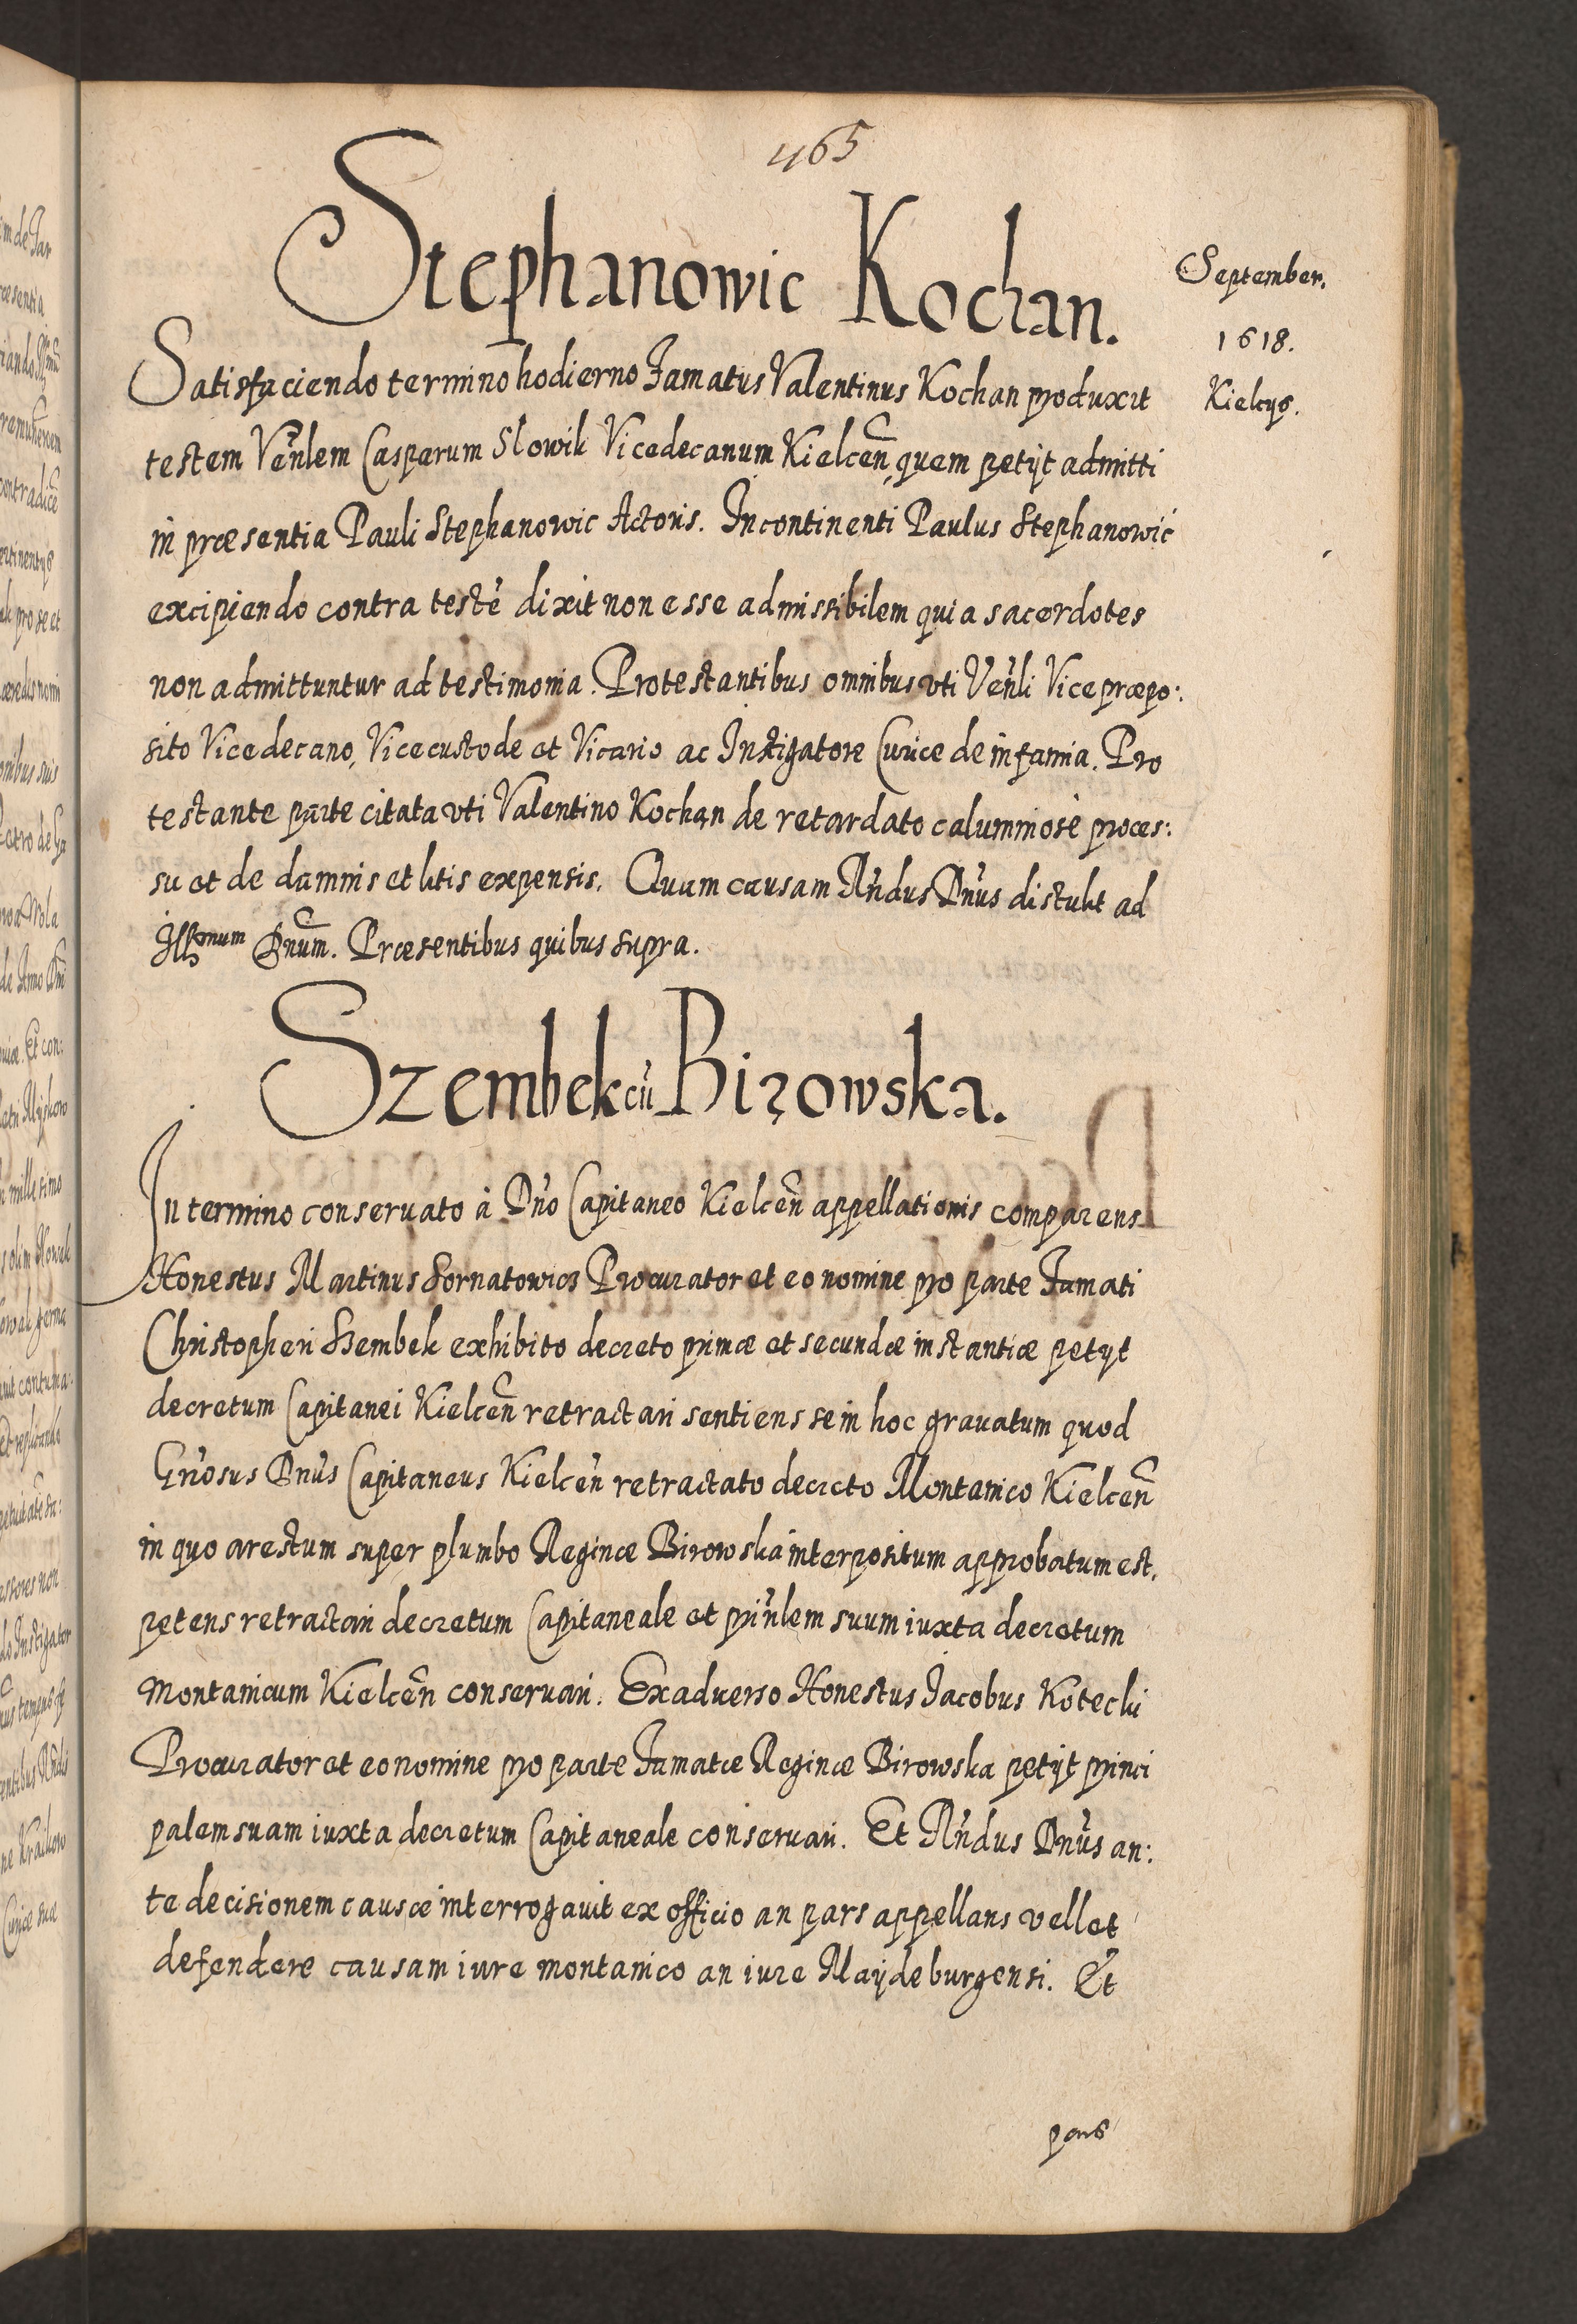 465
Stephanowic Kochan.
September.
1618.
Kielcys.
Satisfaciendo termino hodierno Famatus Valentinus Kochan produxit
testem Venlem Casparum Slowik Vicedecanum Kielcen, quem petyt admitti
in præsentia Pauli Stephanowic Actoris. Incontinenti Paulus Stephanowic
excipiendo contra testē dixit non esse admissibilem quia sacerdotes
non admittuntur ad testimonia. Protestantibus omnibus vti Venli Vicepræpo:
sito Vicedecano, Vicecustode et Vicario ac Instigatore Curiæ de infamia. Pro
testante parte citata vti Valentino Kochan de retardato calumniosè proces:
su et de damnis et litis expensis. Quam causam Rndus Dnus distulit ad
Illmum Dnum. Præsentibus quibus supra.
Szembek cū Birowska.
In termino conseruato à Dno Capitaneo Kielcen appellationis comparens
Honestus Martinus Sornatowicz Procurator et eo nomine pro parte Famati
Christopheri Szembek exhibito decreto primæ et secundæ instantiæ petyt
decretum Capitanei Kielcen retractari sentiens se in hoc grauatum quod
Gnosus Dnus Capitaneus Kielcen retractato decreto Montanico Kielcen
in quo arestum super plumbo Reginæ Birowska interpositum approbatum est.
petens retractari decretum Capitaneale et prinlem suum iuxta decretum
Montanicum Kielcen conseruari. Ex aduerso Honestus Jacobus Kotecki
Procurator et eo nomine pro parte Famatæ Reginæ Birowska petyt princi
palem suam iuxta decretum Capitaneale conseruari. Et Rndus Dnus an:
te decisionem causæ interrogauit ex officio an pars appellans vellet
defendere causam iure montanico an iure Maydeburgensi. Et
pars